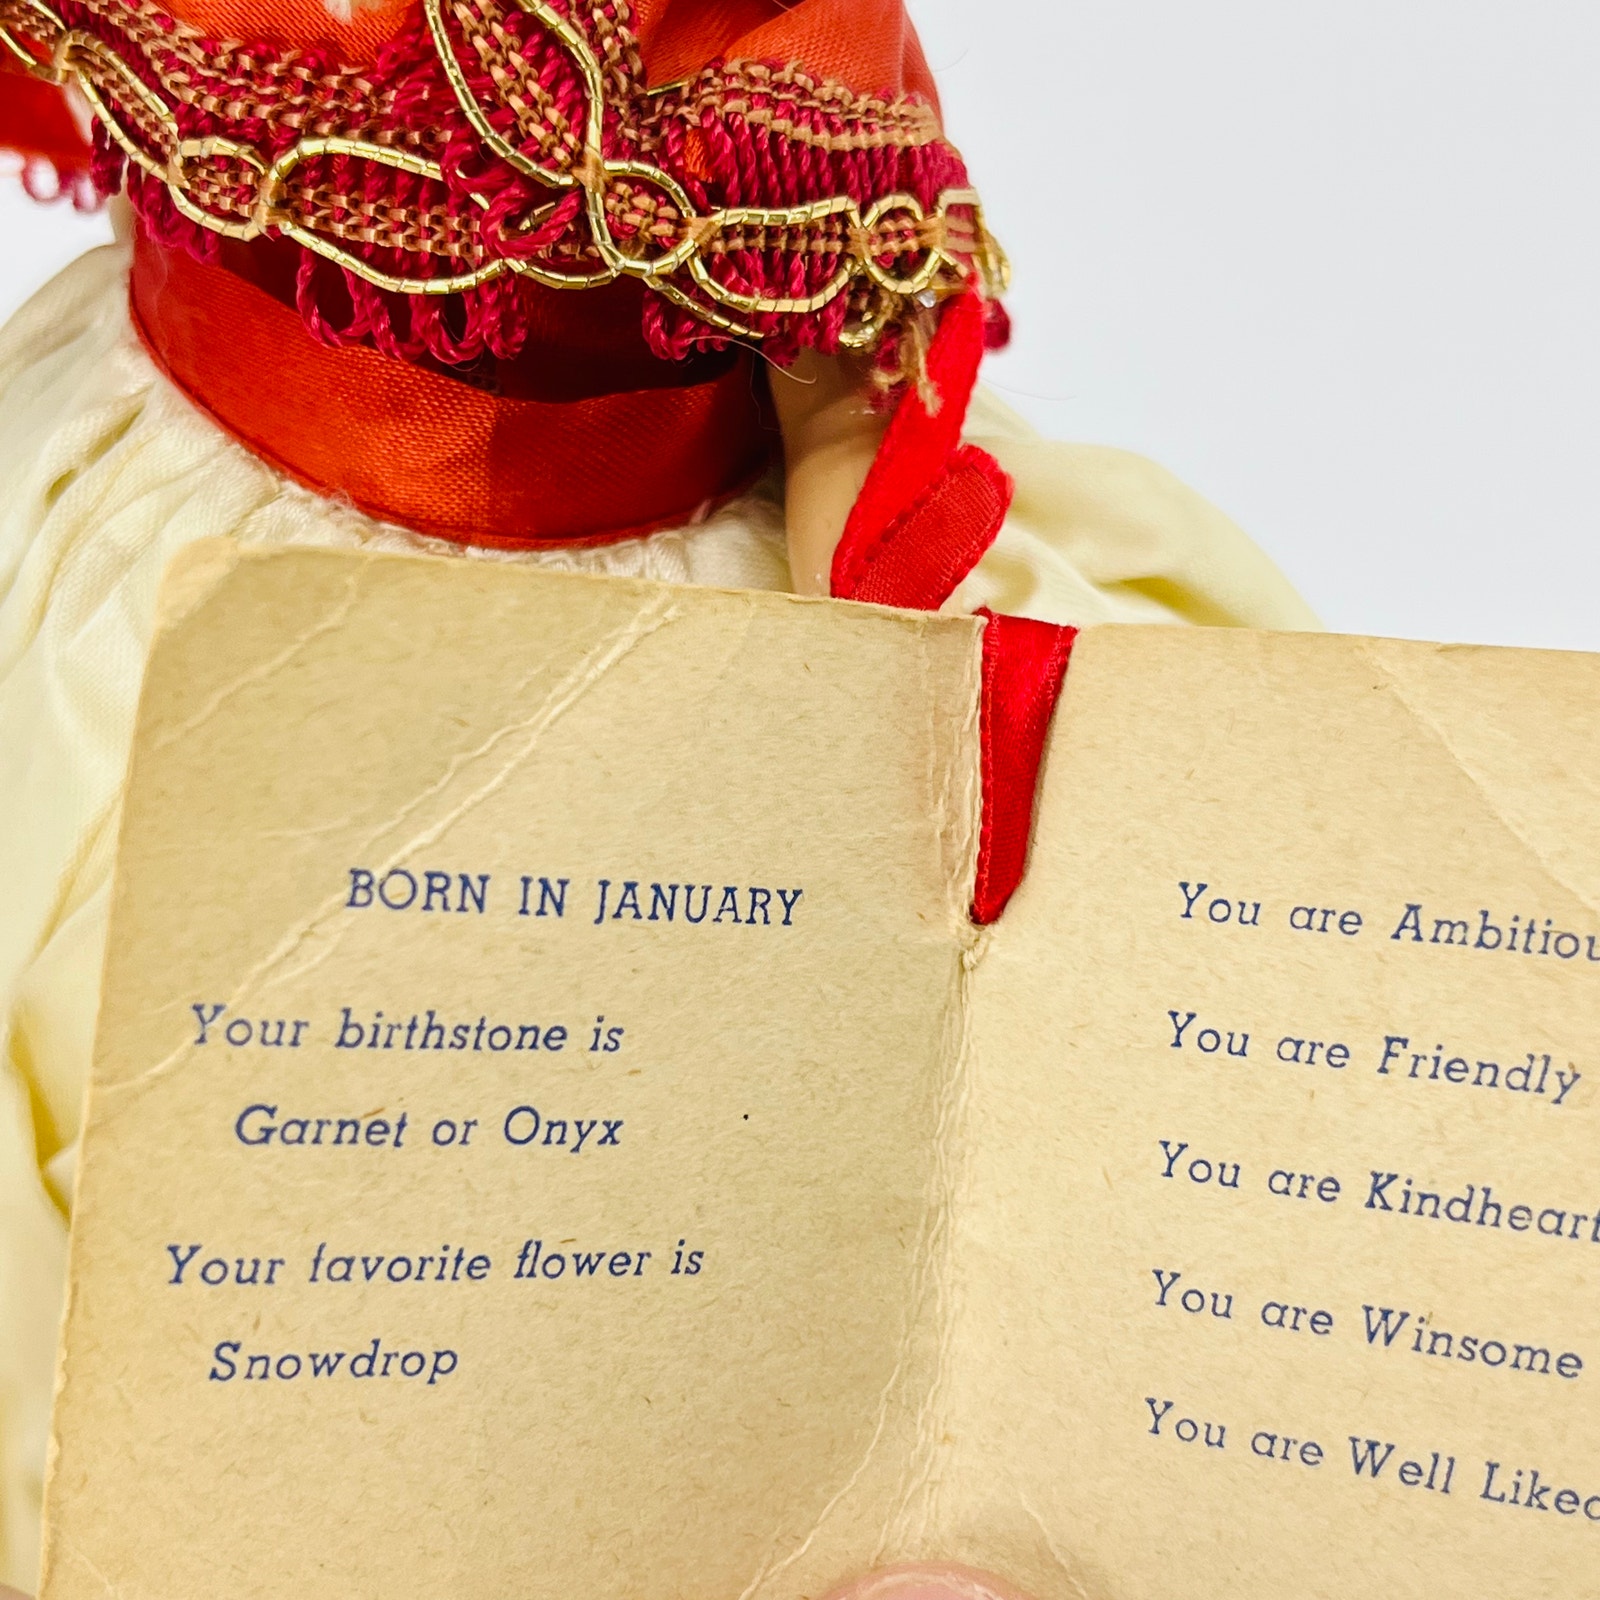 BORN IN JANUARY
Your birthstone is
Garnet or Onyx
Your favorite flower is
Snowdrop
You are Ambitiou
You are Friendly
You are Kindheart
You are Winsome
You are Well Liked